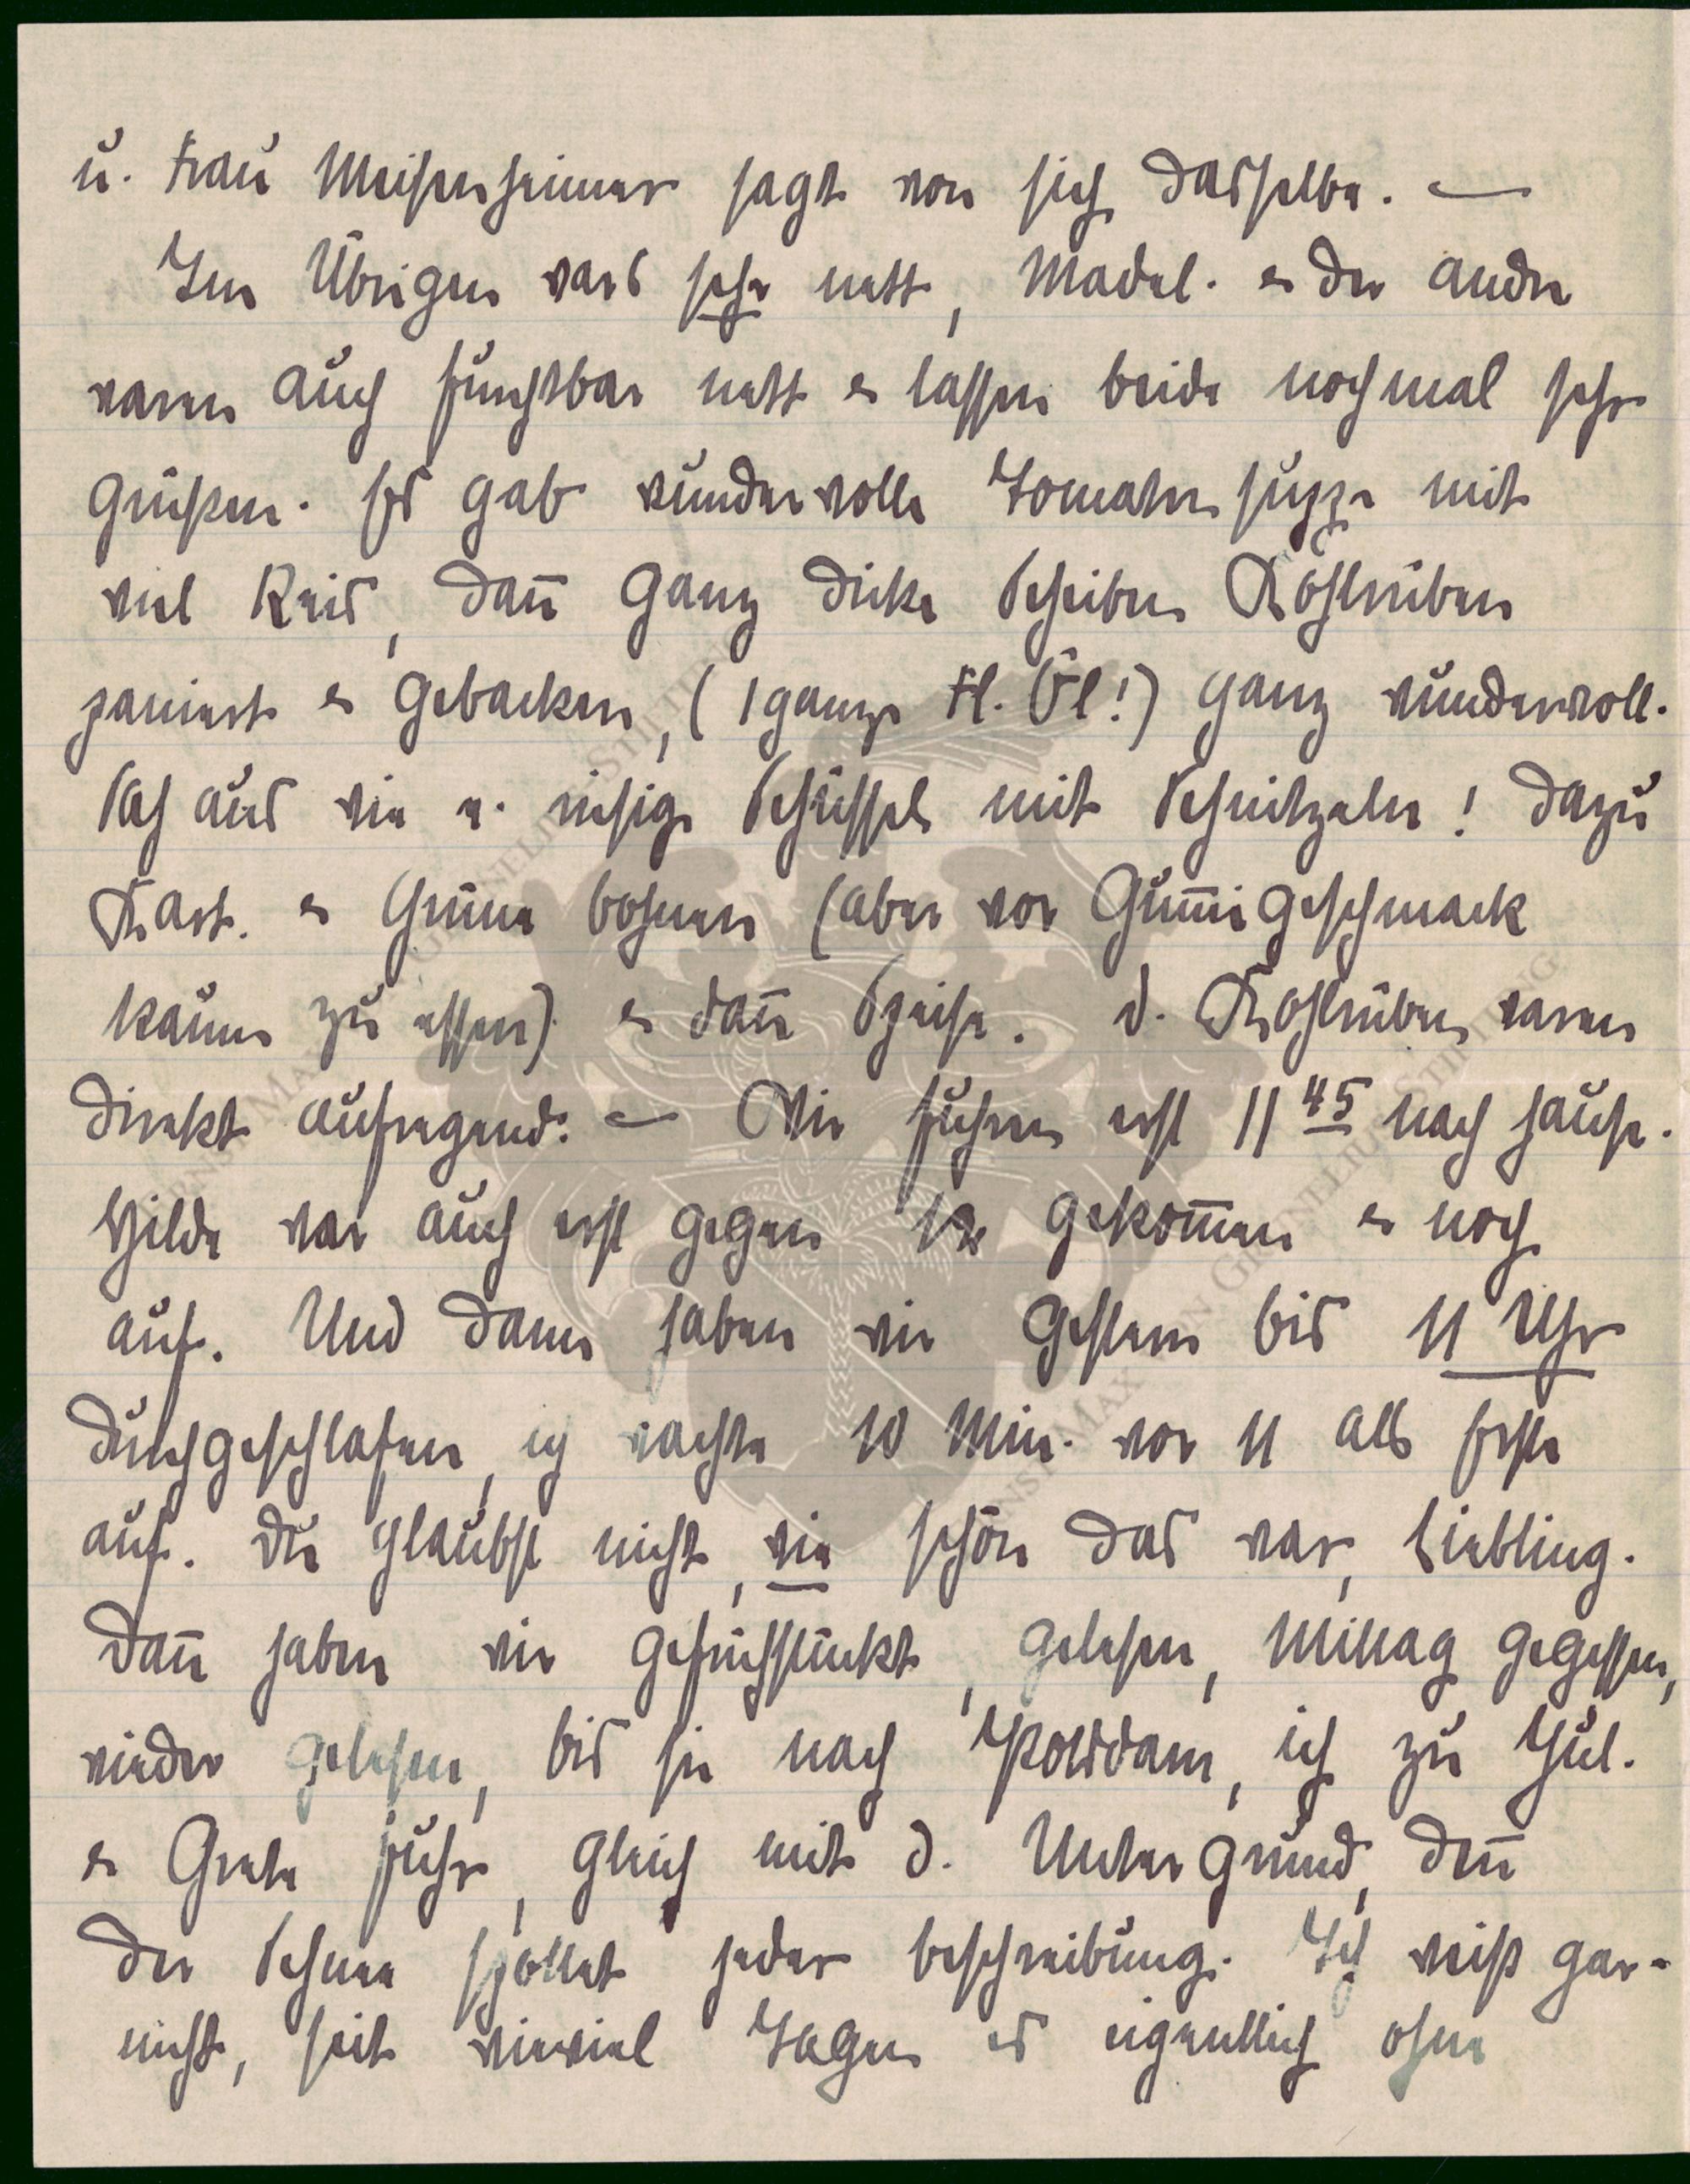 u. Frau Meisenheimer sagt von sich dasselbe. —
Im Übrigen wars sehr nett, Madel. & der andre
waren auch furchtbar nett & lassen beide nochmal sehr
grüßen. Es gab wundervolle Tomatensuppe mit
viel Reis, dañ ganz dicke Scheiben Kohlrüben
paniert & gebacken, (1 ganze Fl. Öl!) ganz wundervoll.
Sah aus wie e. riesige Schüssel mit Schnitzeln! Dazu
Kart. & Grüne Bohnen (aber vor Gum̄igeschmack
kaum zu essen) & dañ Speise. D. Kohlrüben waren
direkt aufregend. — Wir fuhren erst 11 45 nach Hause.
Hilde war auch erst gegen 12 gekom̄en & noch
auf. Und dann haben wir gestern bis 11 Uhr
durchgeschlafen, ich wachte 10 Min. vor 11 als Erste
auf. Du glaubst nicht, wie schön das war, Liebling.
Dañ haben wir gefrühstückt, gelesen, Mittag gegessen,
wieder gelesen, bis sie nach Potsdam, ich zu Jul.
& Grete fuhr, gleich mit d. Untergrund, deñ
der Schnee spottet jeder Beschreibung. Ich weiß gar-
nicht, seit wieviel Tagen es eigentlich ohne